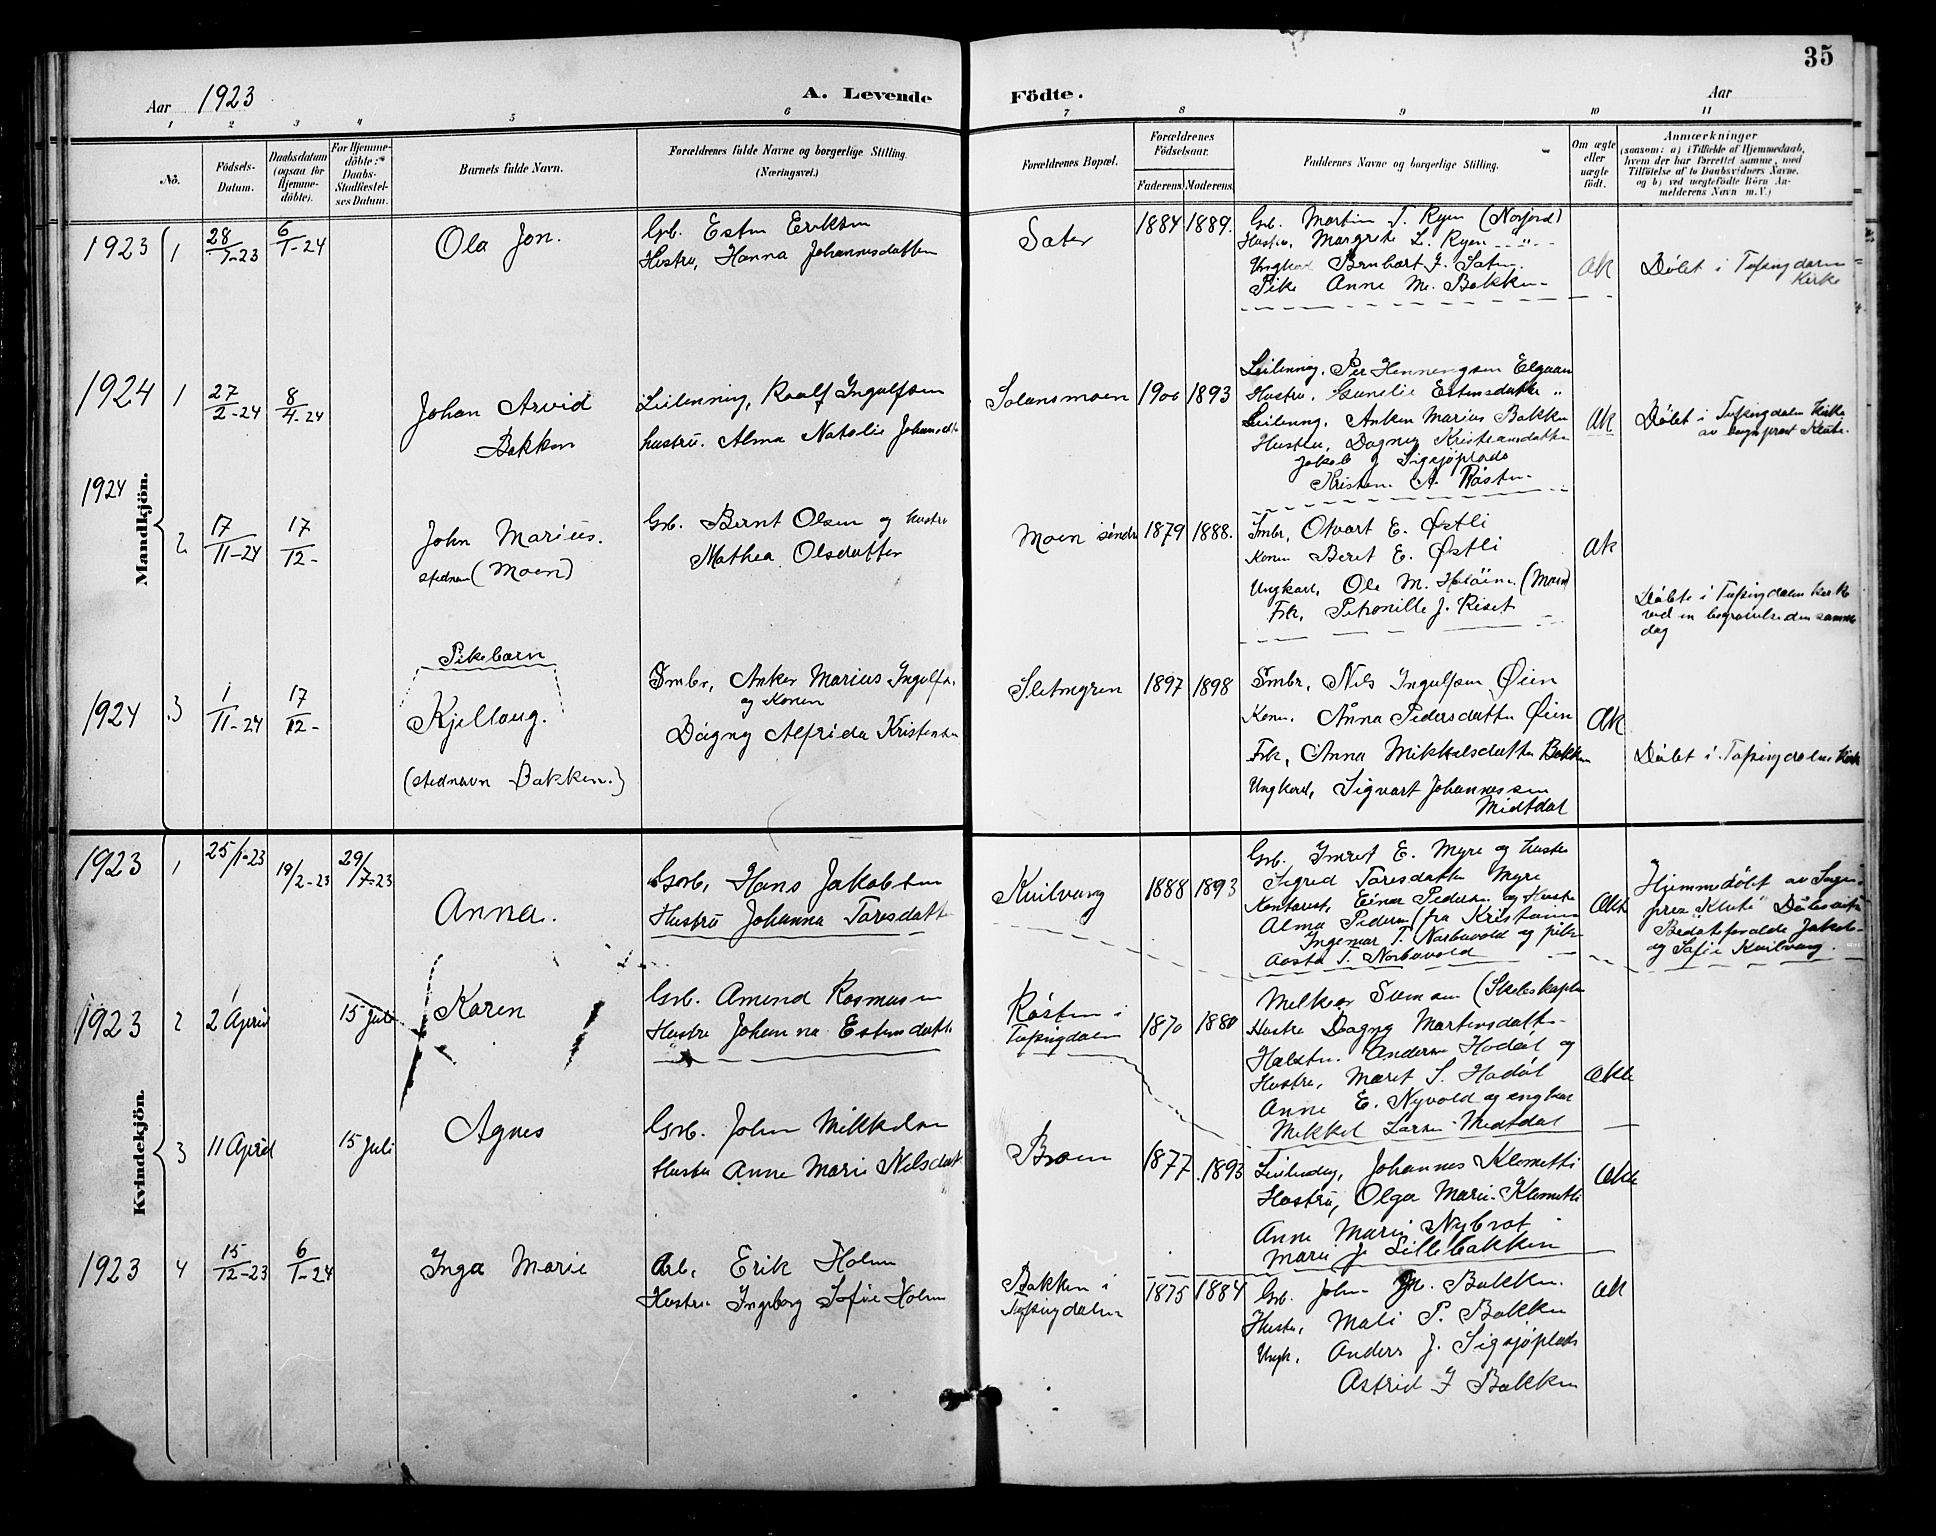 35
Aar 1923
A. Levende Födte.
Aar
1 2 3 4 5 6 7 8 9 10 11
No.
Födsels-Datum.
Daabsdatum (ogsaa for Hjemme-döbte).
For Hjemme-döbte: Daabs-Stadfæstel-ses Datum.
Barnets fulde Navn.
Forældrenes fulde Navne og borgerlige Stilling.
(Næringsvei.)
Forældrenes Bopæl.
Forældrenes Födselsaar.
Faderens Moderens.
Faddernes Navne og borgerlige Stilling.
Om ægte eller uægte födt.
Anmærkninger
(saasom: a) i Tilfælde af Hjemmedaab,
hvem der har forrettet samme, med
Tilföielse af to Daabsvidners Navne,
og b) ved uægtefödte Börn An-
melderens Navn m. V.)
Mandkjön.
1923 1 28/1-23 6/1-24
Ola Jon.
Grb. Esten Eriksen
Hustru, Hanna Johannesdatter
Sæter 1884 1889.
Grb. Martin T. Ryen (Narjord)
Hustru, Margrete L. Ryen
Ungkar Bernhart J. Sæter.
Pike Anne M. Bakken
Æk
Døbt i Tufsingdalen
Kirke
1924 1 27/2-24 8/4-24
Johan Arvid
Bakken
Leilenning, Roalf Ingulfsen
hustru. Alma Natalie
Solansmoen 1900 1893
Leilenning. Per Henningsen Elgaaen
Hustru, Gunelie Estensdatter "
Leilenning, Anken Marius Bakken
Hustru, Dagny Kristiansdatter
Jakob J Sigsjøplads
Kristen A. Røsten
Æk
Døbt i Tufsingdalen Kirke
av sogneprest Klute.
1924 2 17/11-24 17/12-
John Marius.
stednavn (Moen)
Grb. Bernt Olsen og hustru
Mathea Olsdatter
Moen søndre 1879 1888.
Smbr, Otvart E. Østli
Konen Beret E. Østli
Ungkarl, Ole M. (Moen)
Frk, Petronille J. Riset
Æk
Døbte i Tufsingdalen Kirke
ved en begravelse den samme
dag
1924 3 1/11-24 17/12-
Pikebarn
Kjellaug.
(stednavn Bakken.)
Smbr, Anker Marius Ingulfs.
og Konen
Dagny Alfrida
Sletmgren 1897 1898
Smbr, Nils Ingulfsen Øien
Konen. Anna Pedersdatter Øien
Frk, Anna Mikkelsdatter Bakken
Ungkarl, Sigvart Johannessen
Midtdal
Æk
Døbt i Tufsingdalens Kirke
Kvindekjön.
1923 1 25/1-23 19/2-23 29/7-23
Anna.
Grb, Hans Jakobsen
Hustru Johanna Taresdatter
Kvilvang 1888 1893
Grb. Imret E. Myre og hustru
Sigrid Taresdatter Myre
Kontorist, Einar Pedersen og Hustru
Alma Pedersen (fra Kristiania
Ingemar T. Narbuvold og pike
Aasta T. Narbuvold
Ækte
Hjemmedøbt av Sogne-
pres. "Klute"
Bedsteforældre Jakob
og Sofie Kvilvang.
1923 2 2 April 15 Juli
Karen
Grb. Amund Rasmusen
Hustru Johanna Estensdatter
Røsten i
Tufsingdalen 1870 1880
Hustru Dagny Martinsdatter
Anders Hodal og
Hustru, Maret S. Hodal
Anne E. Nyvold og ungkar
Mikkel Larsen Midtdal
Ækte
3 11 April 15 Juli
Agnes
Grb. John Mikkelsen
Hustru Anne Marie Nilsdat
Broen 1877. 1893
Leilending, Johannes Klometli
Hustru, Olga Marie Klometli
Anne Marie Nybrot
Marie J. Lillebakken
Ækte
1923 4 15/12-23 6/1-24
Inga Marie
Arb, Erik Holm
Hustru Ingeborg Sofie Holm
Bakken i
Tufsingdalen 1875 1884
Grb. John M. Bakken.
Hustru, Mali P. Bakken
Ungk, Anders J. Sigsjøplads
Astrid J Bakken
Æk